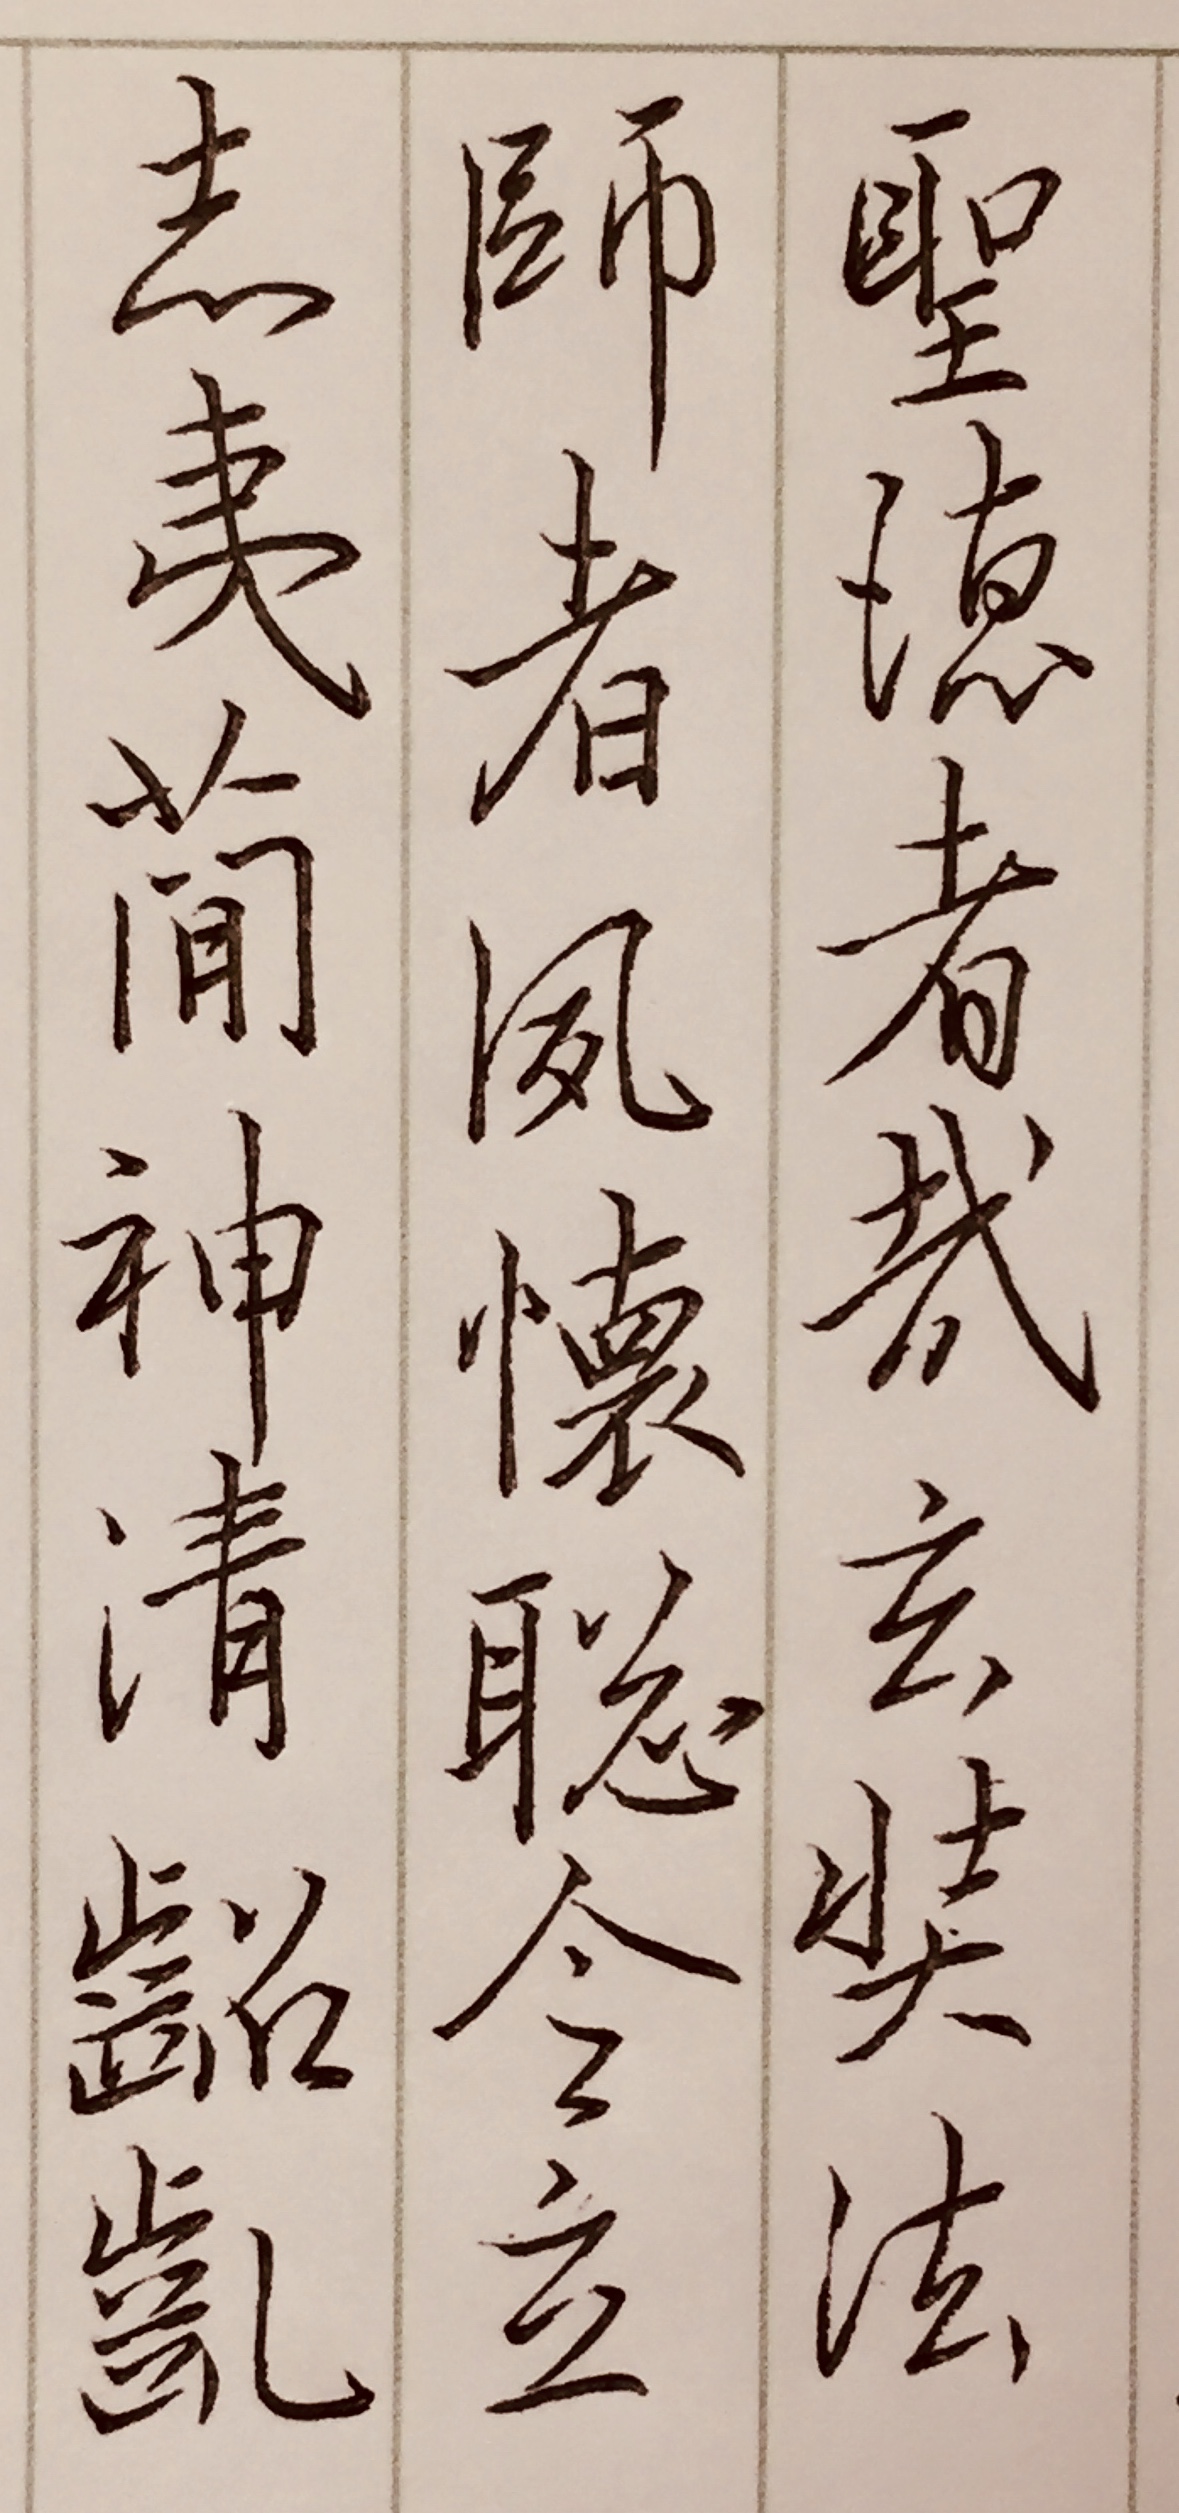 聖德者哉玄奘法
師者夙懷聰令立
志夷簡神清齠齔